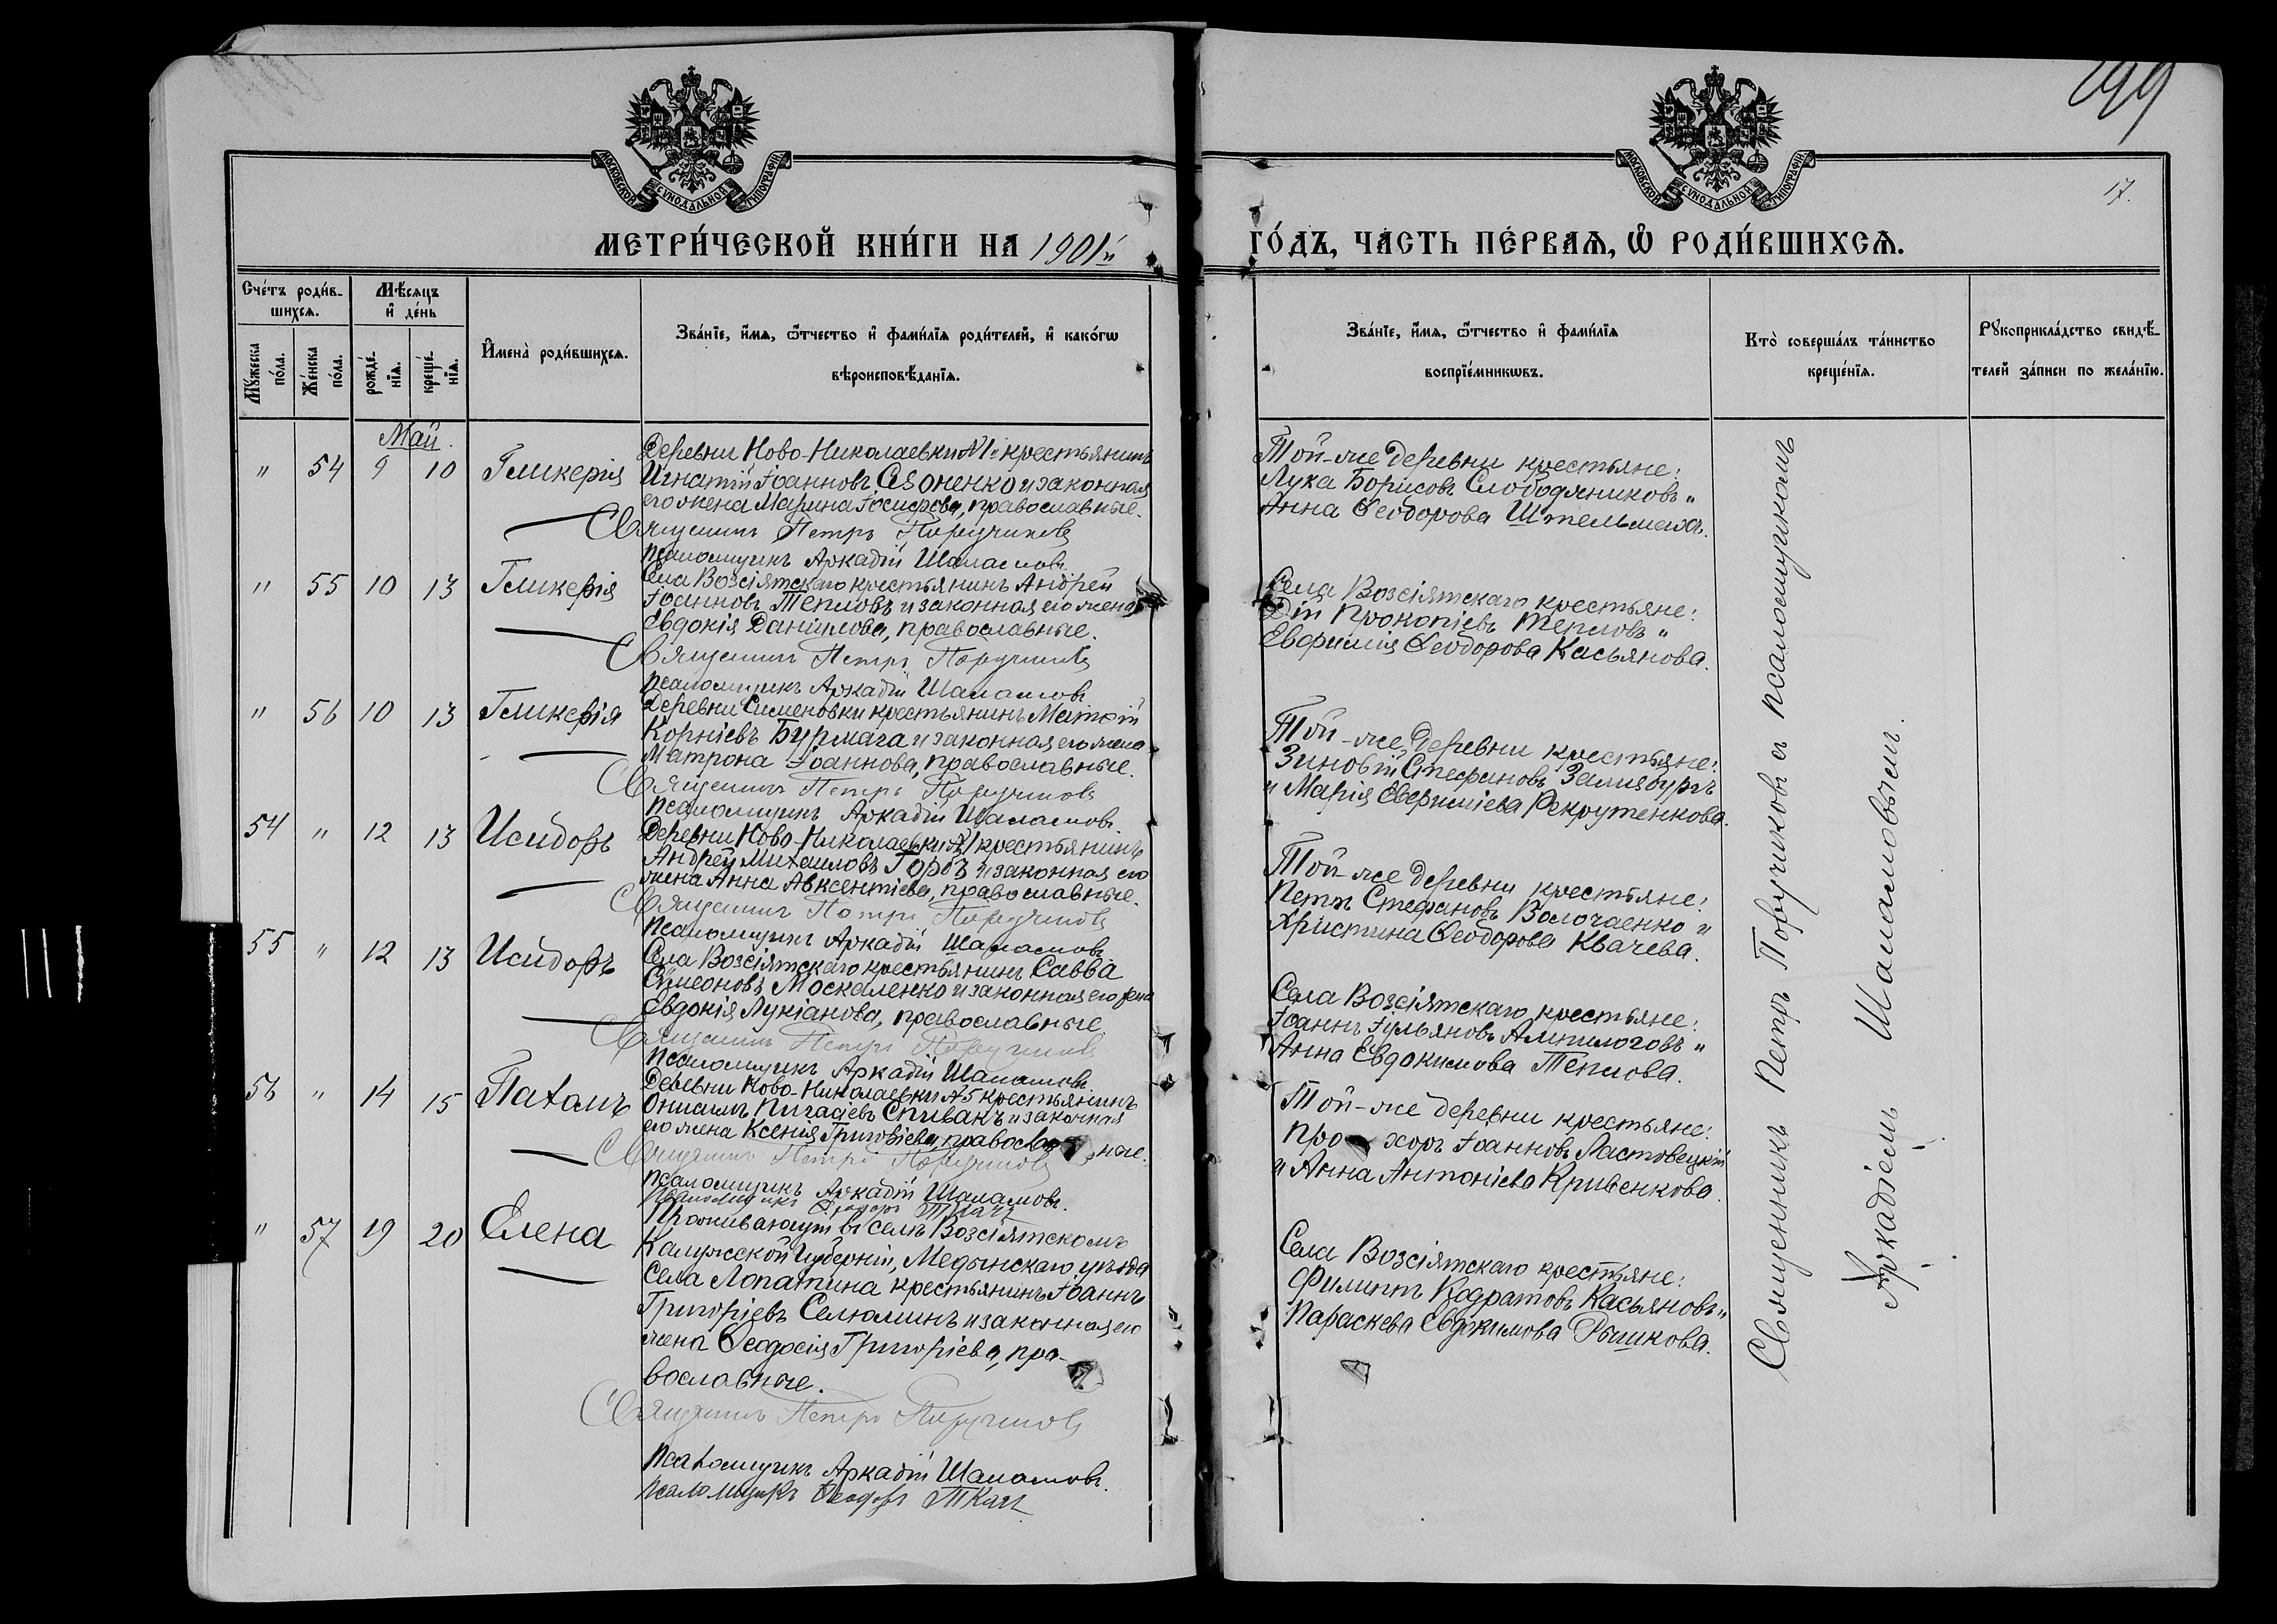 299
17.
МОСКОВСКОЙ СѴНОДАЛЬНОЙ ТИПОГРАФІИ
МОСКОВСКОЙ СѴНОДАЛЬНОЙ ТИПОГРАФІИ
МЕТРИ́ЧЕСКОЙ КНИ́ГИ НА 1901й
ГО́ДЪ, ЧА́СТЬ ПЕ́РВАѦ, Ѿ РОДИ́ВШИХСѦ.
Сче́тъ роди́в-
шихсѧ.
Мꙋ́жеска по́ла.
Же́нска по́ла.
Мѣ́сѧцъ и҆ де́нь
рожде́-нїѧ.
креще́-нїѧ.
И҆мена̀ роди́вшихсѧ.
Зва́нїе, и҆́мѧ, ѻ҆́тчество и҆ фами́лїѧ роди́телей, и҆ како́гѡ
вѣроисповѣ́данїѧ.
Зва́нїе, и҆́мѧ, ѻ҆́тчество и҆ фами́лїѧ
воспрїе́мникѡвъ.
Кто̀ соверша́лъ та́инство
креще́нїѧ.
Рꙋкоприкла́дство свидѣ́-
телей за́писи по жела́нїю.
Май.
" 54 9 10 Гликерія
Деревни Ново-Николаевки №1 крестьянинъ
Игнатій Іоанновъ Авоненко и законная
его жена Марина Іосифова, православные.
Священникъ Петръ Поручиковъ
Псаломщикъ Аркадій Шаламовъ
Той-же деревни крестьяне:
Лука Борисовъ Слободяниковъ и
Анна Ѳеодорова Штельмахъ.
" 55 10 13 Гликерія
Села Возсіятскаго крестьянинъ Андрей
Іоанновъ Тепловъ и законная его жена
Евдокія Даніилова, православные.
Священникъ Петръ Поручиковъ
Псаломщикъ Аркадій Шаламовъ
Села Возсіятскаго крестьяне:
Дій Прокопіевъ Тепловъ и
Евфимія Ѳеодорова Касьянова.
" 56 10 13 Гликерія
Деревни Сименовки крестьянинъ Матѳій
Корніевъ Бурмага и законная его жена
Матрона Іоаннова, православные.
Священникъ Петръ Поручиковъ
Псаломщикъ Аркадій Шаламовъ.
Той-же деревни крестьяне:
Зиновій Стефановъ
и Марія Евфиміева Рекрутенкова.
54 " 12 13 Исидоръ
Деревни Ново-Николаевки №1 крестьянинъ
Андрей Михаиловъ Горбъ и законная его
жена Анна Авксентіева, православные.
Священникъ Петръ Поручиковъ
Псаломщикъ Аркадій Шаламовъ
Той-же деревни крестьяне:
Петръ Стефановъ Волочаенко и
Христина Ѳеодорова Квачева.
55 " 12 13 Исидоръ
Села Возсіятскаго крестьянинъ Савва
Симеоновъ Москаленко и законная его жена
Евдокія Лукіанова, православные.
Священникъ Петръ Поручиковъ
Псаломщикъ Аркадій Шаламовъ.
Села Возсіятскаго крестьяне:
Іоаннъ Іульяновъ Ампилоговъ и
Анна Евдокимова Теплова.
56 " 14 15 Пахомъ
Деревни Ново-Николаевки №5 крестьянинъ
Онисимъ Спивакъ и законная
его жена Ксенія Григоріева, православные.
Священникъ Петръ Поручиковъ
Псаломщикъ Аркадій Шаламовъ.
Псаломщикъ Ѳеодоръ Ткачъ
Той-же деревни крестьяне:
Прохоръ Іоанновъ Ластовецкій
и Анна Антоніева Кривенкова.
" 57 19 20 Елена
Проживающій въ селѣ Возсіятскомъ
Калужской Губерніи, Медынскаго уѣзда
Села Лопатина крестьянинъ Іоаннъ
Григоріевъ Селюминъ и законная его
жена Ѳеодосія Григоріева, пра-
вославные.
Священникъ Петръ Поручиковъ
Псаломщикъ Аркадій Шаламовъ.
Псаломщикъ Ѳеодоръ Ткачъ
Села Возсіятскаго крестьяне:
Филиппъ Кодратовъ Касьяновъ и
Параскева Евдокимова Рышкова.
Священникъ Петръ Поручиковъ съ псаломщикомъ
Аркадіемъ Шаламовымъ.